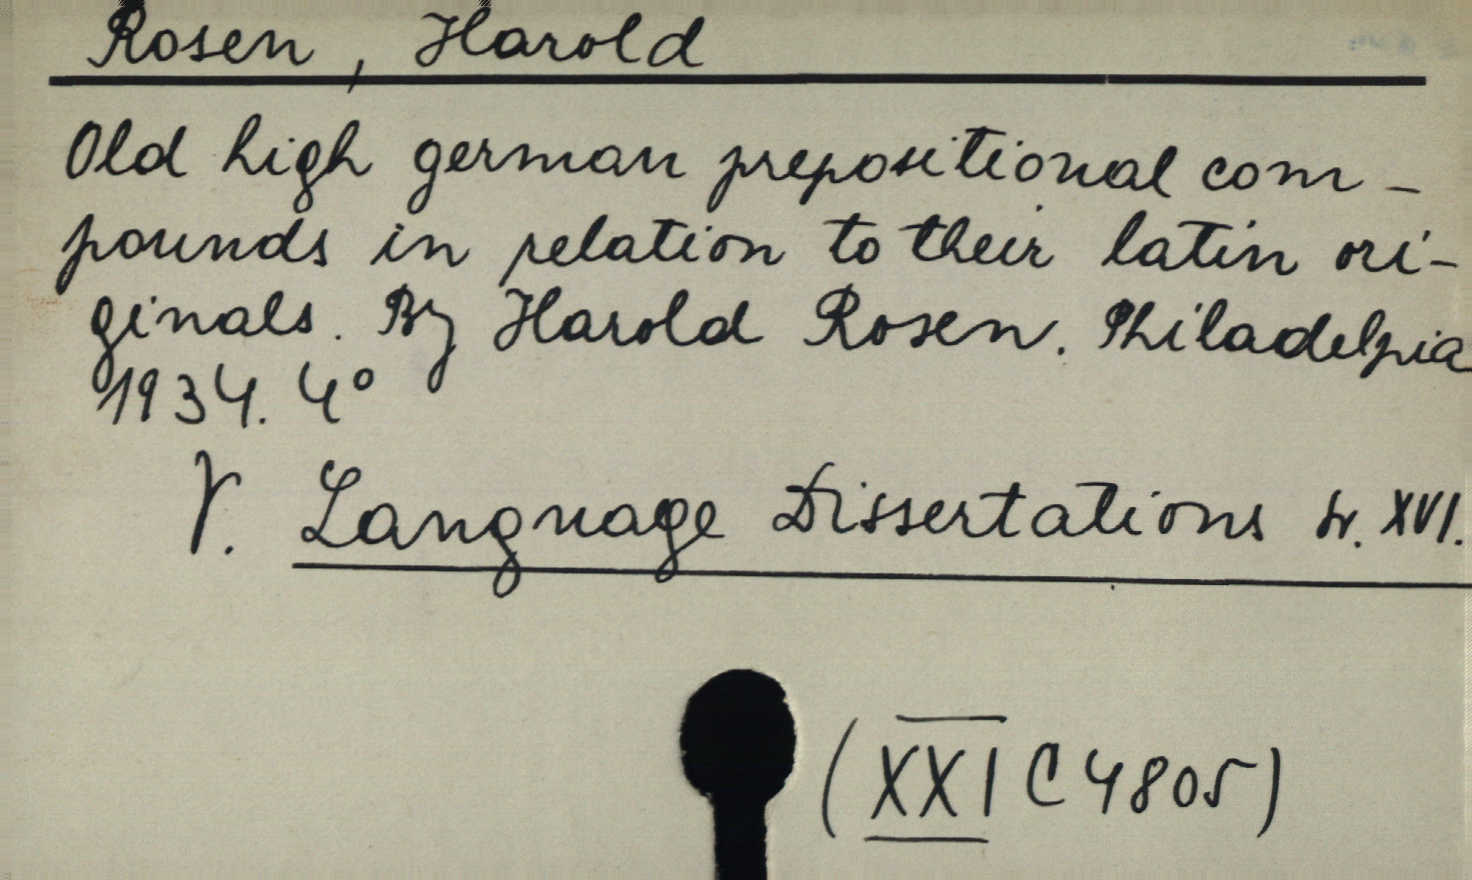 Rosen, Harold
Old high german prepositional com-
pounds in relation to their latin ori-
ginals. By Harold Rosen. Philadelpia
1934. 4°
V. Language Dissertations Nr. XVI.
(XXI C 4805)